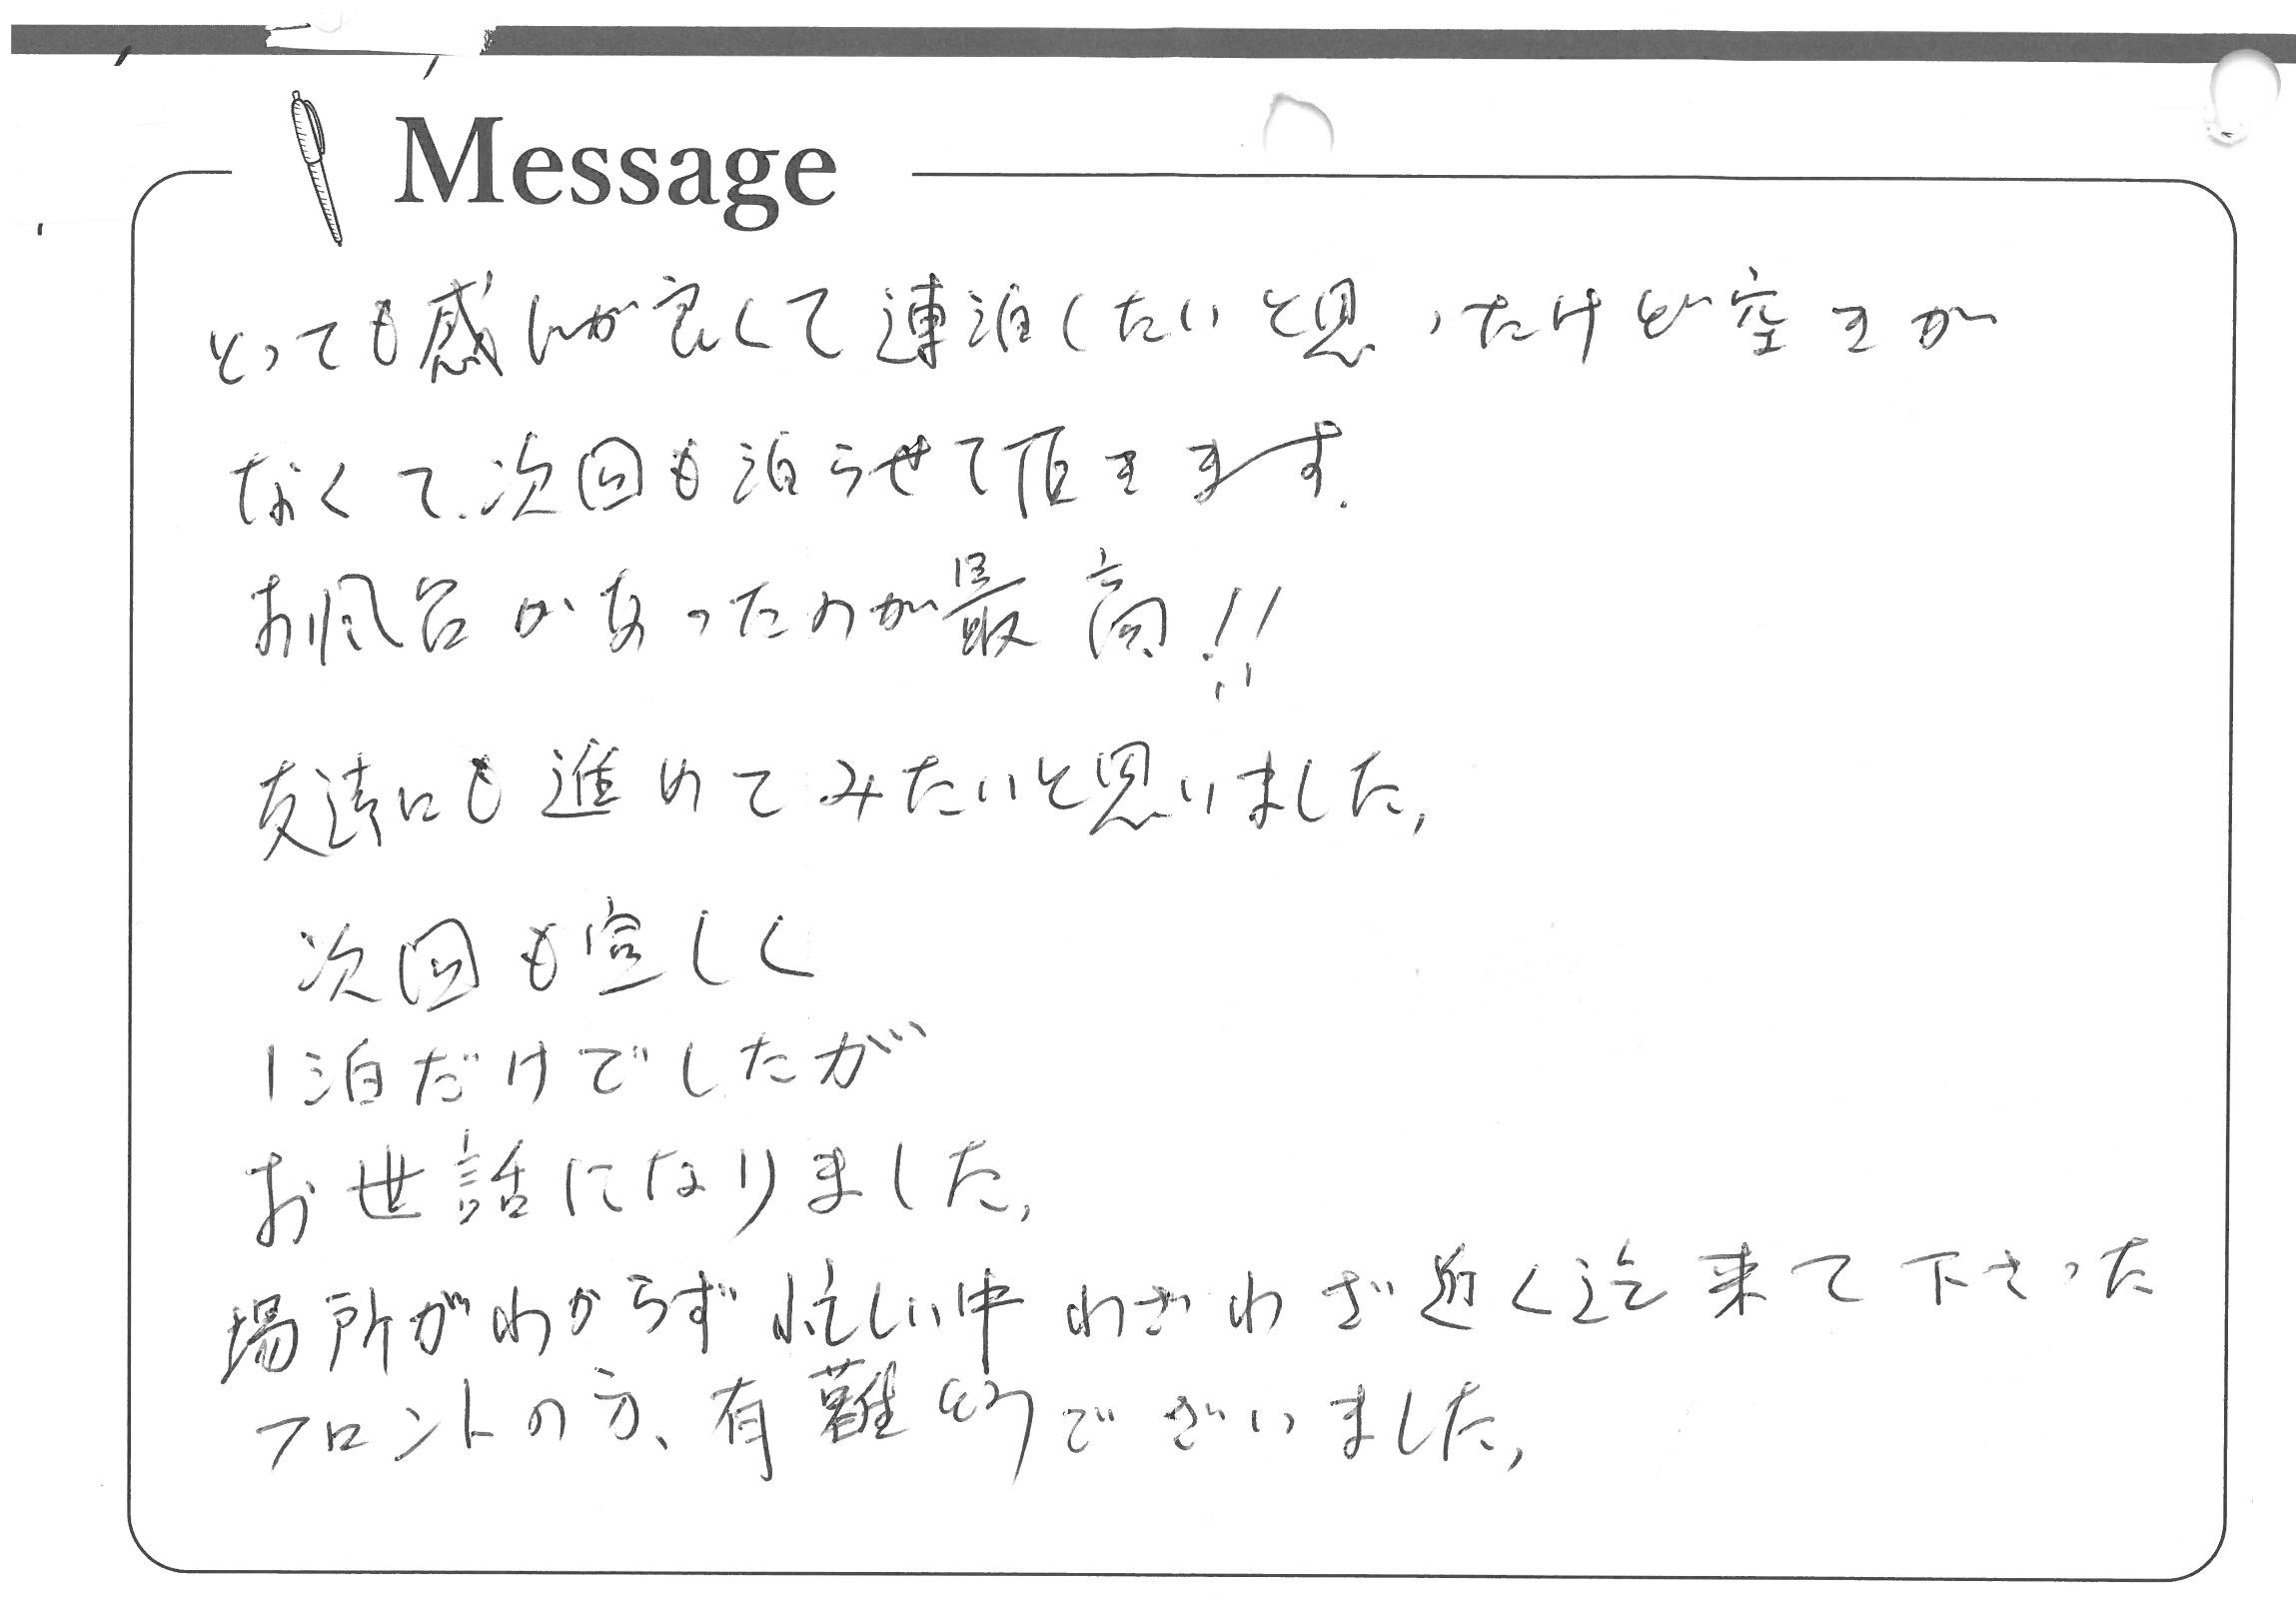 Message
とっても感じが良くて連泊したいと思ったけど空きが
なくて.次回も泊らせて頂きます.
お風呂があったのが最高!!
友達にも進めてみたいと思いました,
次回も宜しく
1泊だけでしたが
お世話になりました,
場所がわからず忙しい中わざわざ近く迄来て下さった
フロントの方、有難うございました,